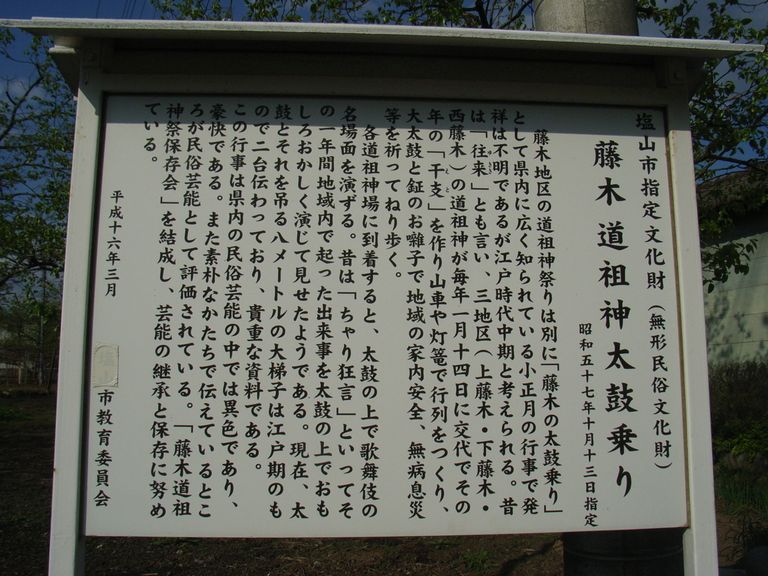 塩山市指定文化財（無形民俗文化財）
藤木道祖神太鼓乗り
昭和五十七年十月十三日指定
藤木地区の道祖神祭りは別に「藤木の太鼓乗り」
として県内に広く知られている小正月の行事で発
祥は不明であるが江戸時代中期と考えられる。昔
は「往来」とも言い、三地区（上藤木・下藤木・
西藤木）の道祖神が毎年一月十四日に交代でその
年の「干支」を作り山車や灯篭で行列をつくり、
大太鼓と鉦のお囃子で地域の家内安全、無病息災
等を祈ってねり歩く。
各道祖神場に到着すると、太鼓の上で歌舞伎の
名場面を演ずる。昔は「ちゃり狂言」といってそ
の一年間地域内で起った出来事を太鼓の上でおも
しろおかしく演じて見せたようである。現在、太
鼓とそれを吊る八メートルの大梯子は江戸期のも
ので二台伝わっており、貴重な資料である。
この行事は県内の民俗芸能の中では異色であり、
豪快である。また素朴なかたちで伝えているとこ
ろが民俗芸能として評価されている。「藤木道祖
神祭保存会」を結成し、芸能の継承と保存に努め
ている。
平成十六年三月
塩山市教育委員会